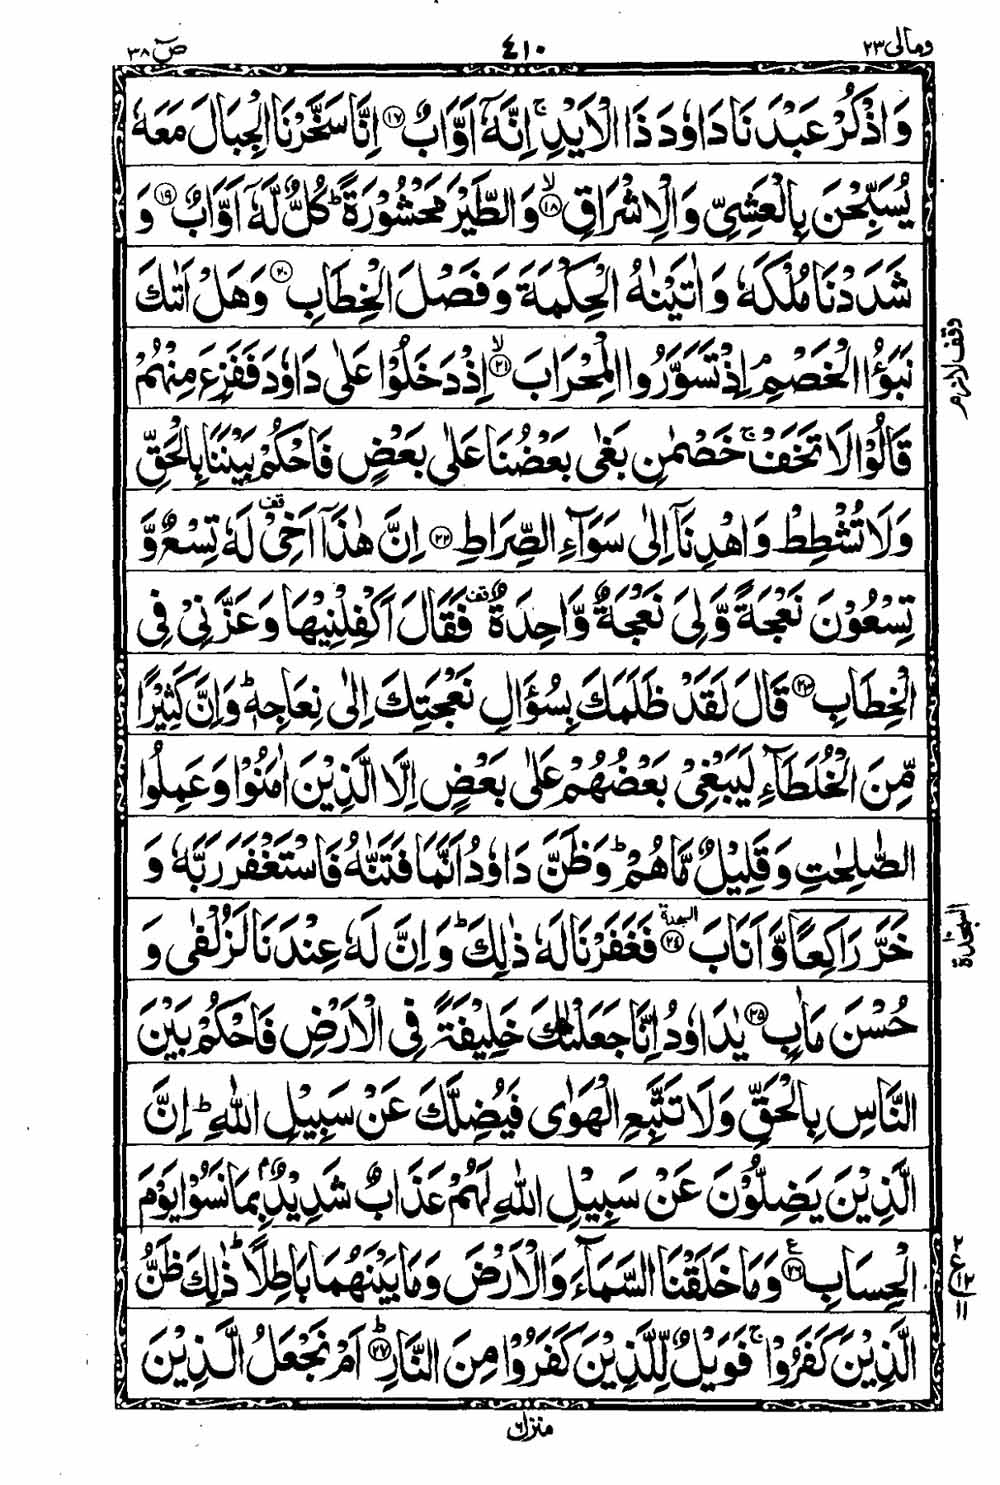 ومالی ٢٣
٤١٠
صٓ ٣٨
وَاذْكُرْ عَبْدَنَا دَاوٗدَ ذَا الْاَيْدِ ۚ اِنَّهٗۤ اَوَّابٌ ﴿١٧﴾ اِنَّا سَخَّرْنَا الْجِبَالَ مَعَهٗ
يُسَبِّحْنَ بِالْعَشِيِّ وَالْاِشْرَاقِ ﴿١٨﴾ۙ وَالطَّيْرَ مَحْشُوْرَةً ؕ كُلٌّ لَّهٗۤ اَوَّابٌ ﴿١٩﴾ وَ
شَدَدْنَا مُلْكَهٗ وَاٰتَيْنٰهُ الْحِكْمَةَ وَفَصْلَ الْخِطَابِ ﴿٢٠﴾ وَهَلْ اَتٰىكَ
نَبَؤُا الْخَصْمِ ۘ اِذْ تَسَوَّرُوا الْمِحْرَابَ ﴿٢١﴾ۙ اِذْ دَخَلُوْا عَلٰى دَاوٗدَ فَفَزِعَ مِنْهُمْ
وقف لازم
قَالُوْا لَا تَخَفْ ۚ خَصْمٰنِ بَغٰى بَعْضُنَا عَلٰى بَعْضٍ فَاحْكُمْ بَيْنَنَا بِالْحَقِّ
وَلَا تُشْطِطْ وَاهْدِنَاۤ اِلٰى سَوَآءِ الصِّرَاطِ ﴿٢٢﴾ اِنَّ هٰذَاۤ اَخِيْ قف لَهٗ تِسْعٌ وَّ
تِسْعُوْنَ نَعْجَةً وَّلِيَ نَعْجَةٌ وَّاحِدَةٌ قف فَقَالَ اَكْفِلْنِيْهَا وَعَزَّنِيْ فِي
الْخِطَابِ ﴿٢٣﴾ قَالَ لَقَدْ ظَلَمَكَ بِسُؤَالِ نَعْجَتِكَ اِلٰى نِعَاجِهٖ ؕ وَاِنَّ كَثِيْرًا
مِّنَ الْخُلَطَآءِ لَيَبْغِيْ بَعْضُهُمْ عَلٰى بَعْضٍ اِلَّا الَّذِيْنَ اٰمَنُوْا وَعَمِلُوا
الصّٰلِحٰتِ وَقَلِيْلٌ مَّا هُمْ ؕ وَظَنَّ دَاوٗدُ اَنَّمَا فَتَنّٰهُ فَاسْتَغْفَرَ رَبَّهٗ وَ
خَرَّ رَاكِعًا وَّاَنَابَ ﴿٢٤﴾ السجدة فَغَفَرْنَا لَهٗ ذٰلِكَ ؕ وَاِنَّ لَهٗ عِنْدَنَا لَزُلْفٰى وَ
السجدة
حُسْنَ مَاٰبٍ ﴿٢٥﴾ يٰدَاوٗدُ اِنَّا جَعَلْنٰكَ خَلِيْفَةً فِي الْاَرْضِ فَاحْكُمْ بَيْنَ
النَّاسِ بِالْحَقِّ وَلَا تَتَّبِعِ الْهَوٰى فَيُضِلَّكَ عَنْ سَبِيْلِ اللّٰهِ ؕ اِنَّ
الَّذِيْنَ يَضِلُّوْنَ عَنْ سَبِيْلِ اللّٰهِ لَهُمْ عَذَابٌ شَدِيْدٌۢ بِمَا نَسُوْا يَوْمَ
الْحِسَابِ ﴿٢٦﴾ ع وَمَا خَلَقْنَا السَّمَآءَ وَالْاَرْضَ وَمَا بَيْنَهُمَا بَاطِلًا ؕ ذٰلِكَ ظَنُّ
ع
الَّذِيْنَ كَفَرُوْا ۚ فَوَيْلٌ لِّلَّذِيْنَ كَفَرُوْا مِنَ النَّارِ ﴿٢٧﴾ؕ اَمْ نَجْعَلُ الَّذِيْنَ
منزل ٦